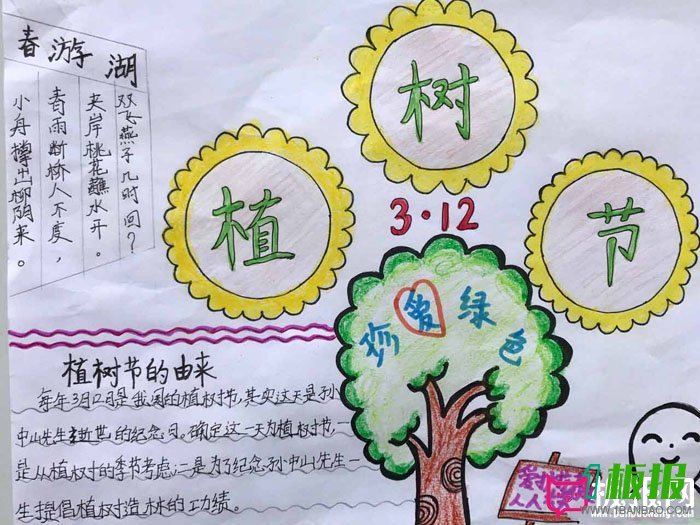 春游湖
双飞燕子几时回？
夹岸桃花蘸水开。
春雨断桥人不度，
小舟撑出柳阴来。
植树节
3·12
珍爱绿色
植树节的由来
每年3月12日是我国的植树节，其实这天是孙
中山先生逝世的纪念日。确定这一天为植树节，一
是从植树的季节考虑；二是为了纪念孙中山先生一
生提倡植树造林的功绩。
板报
WWW.1BANBAO.COM